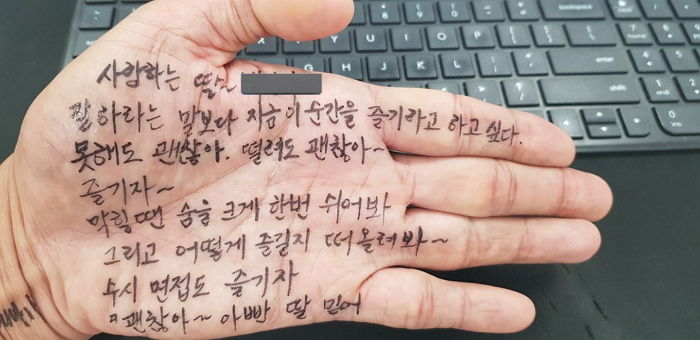 사랑하는 딸~
잘하라는 말보다 지금 이 순간을 즐기라고 하고 싶다.
못해도 괜찮아. 떨려도 괜찮아~
즐기자~
막힐 땐 숨을 크게 한번 쉬어봐
그리고 어떻게 즐길지 떠올려봐~
수시 면접도 즐기자
괜찮아~ 아빤 딸 믿어